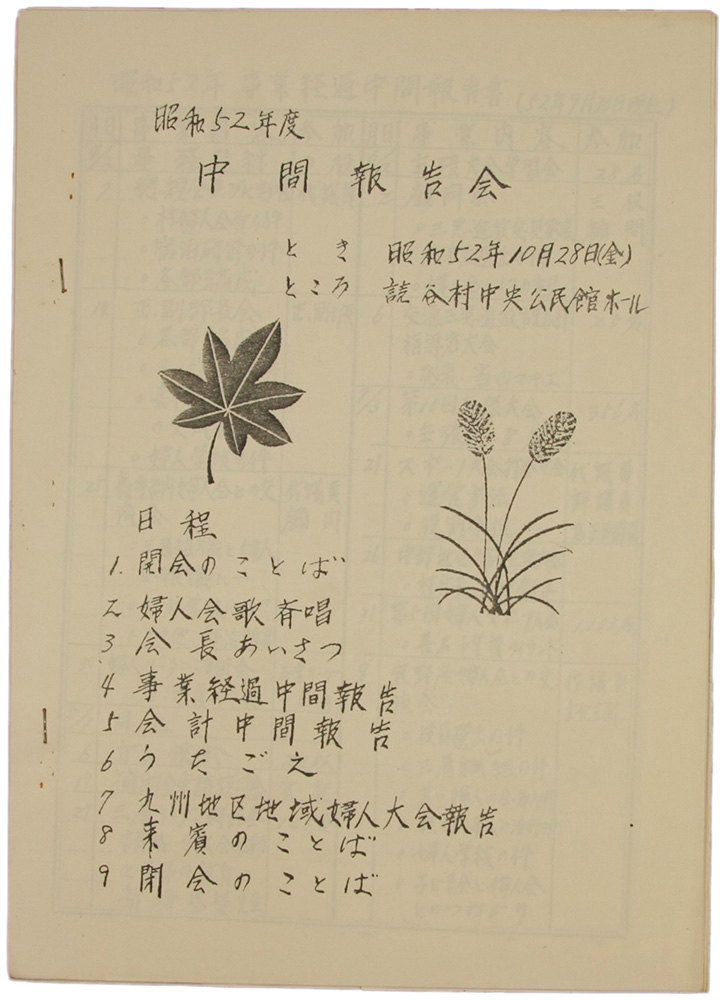 昭和52年度
中間報告会
とき 昭和52年10月28日(金)
ところ 読谷村中央公民館ホール
日程
1. 開会のことば
2. 婦人会歌斉唱
3 会長あいさつ
4 事業経過中間報告
5 会計中間報告
6 うたごえ
7 九州地区地域婦人大会報告
8 来賓のことば
9 閉会のことば